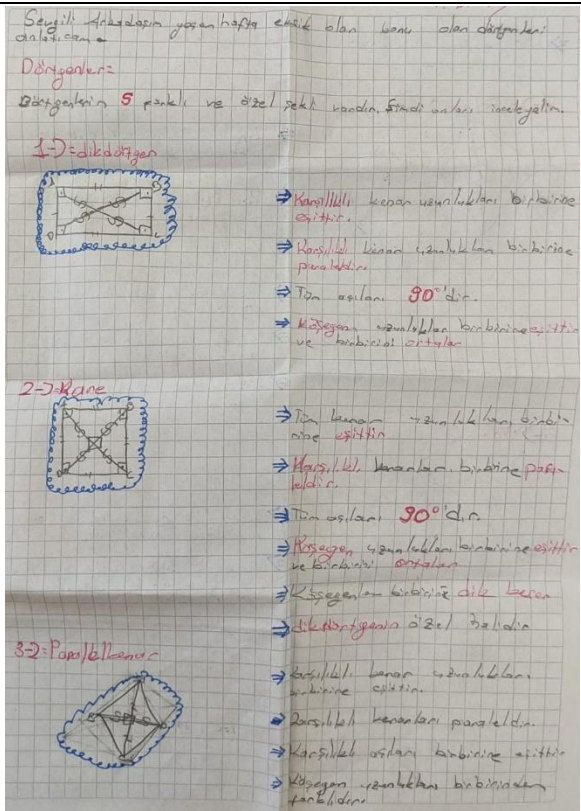 Sevgili Arkadaşım geçen hafta eksik olan konu olan dörtgenleri
anlatıcam.
Dörtgenler=
Dörtgenlerin 5 farklı ve özel şekli vardır. Şimdi onları inceleyelim.
1-)=dikdörtgen
⇒ Karşılıklı kenar uzunlukları birbirine
eşittir.
⇒ Karşılıklı kenar uzunlukları birbirine
paraleldir.
⇒ Tüm açıları 90°'dir.
⇒ Köşegen uzunlukları birbirine eşittir
ve birbirini ortalar
2-)=Kare
⇒ Tüm kenar uzunlukları birbi-
rine eşittir
⇒ Karşılıklı kenarları birbirine para-
leldir.
⇒ Tüm açıları 90°'dir.
⇒ Köşegen uzunlukları birbirine eşittir
ve birbirini ortalar
⇒ Köşegenler birbirine dik keser
⇒ dikdörtgenin özel halidir
3-)=Paralelkenar
⇒ Karşılıklı kenar uzunlukları
birbirine eşittir.
⇒ Karşılıklı kenarları paraleldir.
⇒ Karşılıklı açıları birbirine eşittir
⇒ Köşegen uzunlukları birbirinden
farklıdır.